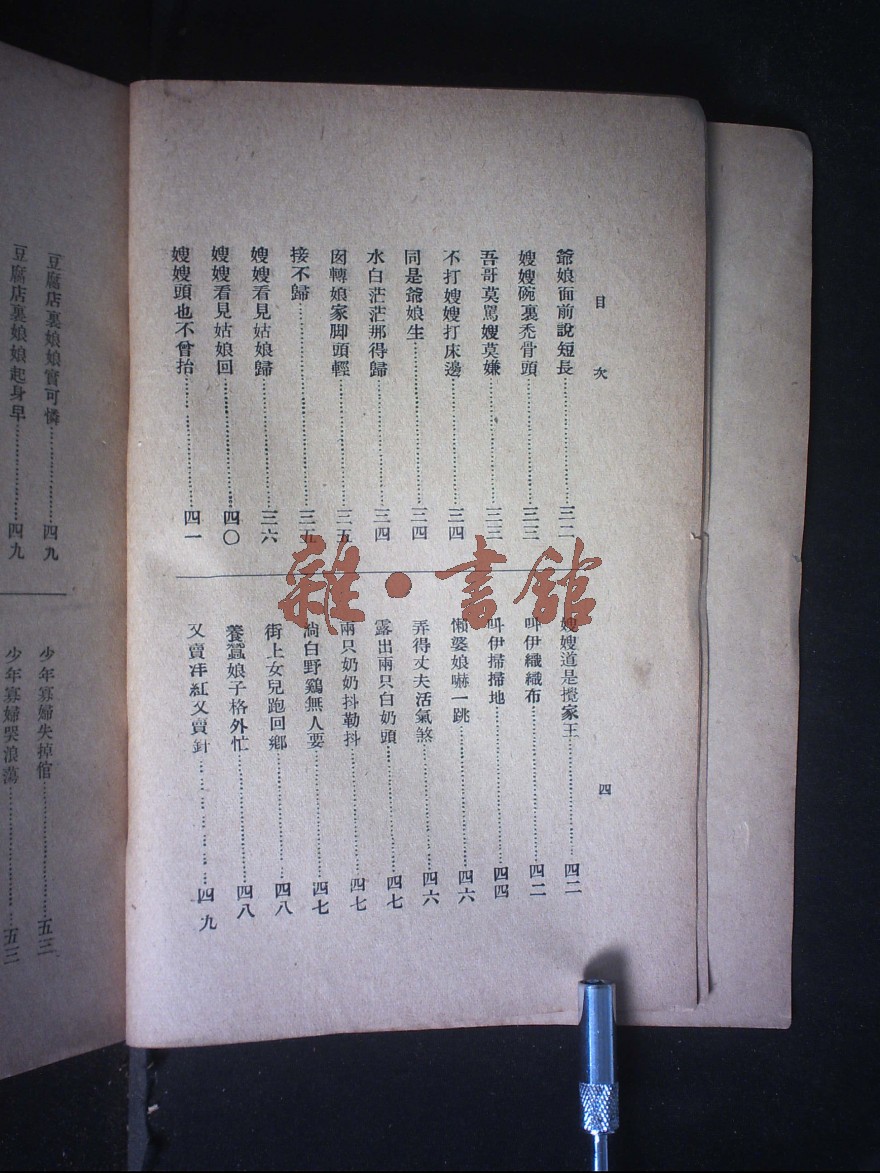 目次
四
爺娘面前說短長……三二
嫂嫂碗裏禿骨頭……三三
吾哥莫罵嫂莫嫌……三三
不打嫂嫂打床邊……三四
同是爺娘生……三四
水白茫茫那得歸……三四
囡轉娘家脚頭輕……三五
接不歸……三五
嫂嫂看見姑娘歸……三六
嫂嫂看見姑娘回……四〇
嫂嫂頭也不曾抬……四一
嫂嫂道是攪家王……四二
叫伊織織布……四二
叫伊掃掃地……四四
懶婆娘嚇一跳……四六
弄得丈夫活氣煞……四六
露出兩只白奶頭……四七
兩只奶奶抖勒抖……四七
淌白野鷄無人要……四七
街上女兒跑回鄉……四八
養蠶娘子格外忙……四八
又賣洋紅又賣針……四九
豆腐店裏娘娘實可憐……四九
豆腐店裏娘娘起身早……四九
少年寡婦失掉倌……五三
少年寡婦哭浪蕩……五三
雜·書館